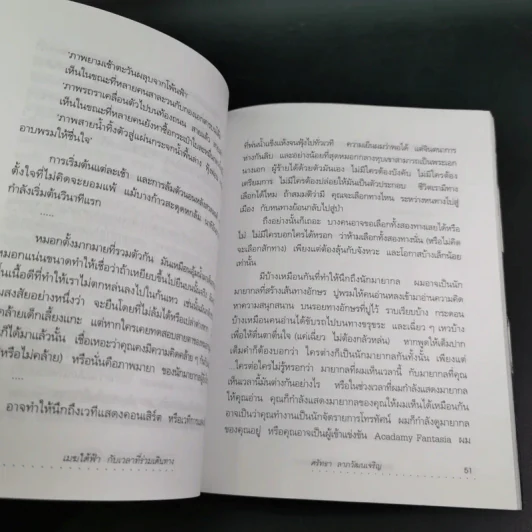 'ภาพยามเช้าตะวันผลุบจากโค้นฟ้า
เห็นในขณะที่หลายคนสาละวนกับกอง
'ภาพรถราเคลื่อนตัวไปบนท้องถนน สายแล้ว
เห็นในขณะที่หลายคนยังหาซื้อกระเป๋าใบ
'ภาพสายน้ำทิ้งตัวสู่แผ่นกระจกน้ำพื้นล่าง
อาบพรมให้ชื่นใจ'
การเริ่มต้นแต่ละเช้า และการล้มตัวนอน
ตั้งใจที่ไม่คิดจะยอมแพ้ แม้บางก้าวสะดุดหกล้ม
กำลังเริ่มต้นวินาทีแรก
.....
หมอกตั้งมากมายที่รวมตัวกัน มันเหมือน
หมอกแน่นขนาดทำให้เชื่อว่าถ้าเหยียบขึ้นไปยืนบน
ในเนื้อดีที่ทำให้เราไม่ตกหล่นลงไปในก้นเหว
สงสัยอย่างหนึ่งว่า จะยืนโดยที่ไม่ล้มได้หรือเปล่า
คล้ายเด็กเลี้ยงแกะ แต่ถ้าหากใครเคยทดสอบสายตา
ก็ได้มาแล้วนั้น เชื่อเหอะว่าคุณคงมีความคิดคล้าย ๆ กัน
(หรือไม่คล้าย) หรือนั่นคือภาพมายา ของนักมายากล
.....
อาจทำให้นึกถึงเวทีแสดงคอนเสิร์ต หรือเวที
เมฆใต้ฟ้า กับเวลาที่ร่วมเดินทาง
ที่พ่นน้ำแข็งแห้งจนฟุ้งไปทั่วเวที ความเย็นผมว่าพอได้ แต่จินตนาการ
ห่างกันลิบ และอย่างน้อยที่สุดหมอกกลางหุบเขาสามารถเป็นพระเอก
นางเอก ผู้ร้ายได้ด้วยตัวมันเอง ไม่มีใครต้องบังคับ ไม่มีใครต้อง
เตรียมการ ไม่มีใครต้องปล่อยให้มันเป็นตัวประกอบ ชีวิตเรามีทาง
เลือกได้ไหม ถ้าสมมติว่ามี คุณจะเลือกทางไหน ระหว่างหนทางไปสู่
เมือง กับหนทางย้อนกลับไปสู่ป่า
ถึงอย่างนั้นก็เถอะ บางคนอาจขอเลือกทั้งสองทางเลยได้หรือ
ไม่ ไม่มีใครบอกใครได้หรอก ว่าห้ามเลือกทั้งสองทางนั้น (หรือไม่คิด
จะเลือกสักทาง) เพียงแต่ต้องลุ้นกับจังหวะ และโอกาสบ้างเล็กน้อย
เท่านั้น
มีบ้างเหมือนกันที่ทำให้นึกถึงนักมายากล ผมอาจเป็นนัก
มายากลที่สร้างเส้นทางอักษร ปูพรมให้คนอ่านหลงเข้ามาอ่านความคิด
หาความสนุกสนาน บนรอยทางอักษรที่ปูไว้ ราบเรียบบ้าง กระดอน
บ้างเหมือนคนอ่านได้ขับรถไปบนทางขรุขระ และเฉี่ยว ๆ เหวบ้าง
เพื่อให้ตื่นตาตื่นใจ (แค่เฉี่ยว ไม่ต้องกลัวหล่น) หากพูดให้เต็มปาก
เต็มคำก็ต้องบอกว่า ใครต่างก็เป็นนักมายากลกันทั้งนั้น เพียงแต่
...ใครต่อใครไม่รู้หรอกว่า มายากลที่ผมเห็นเวลานี้ กับมายากลที่คุณ
เห็นเวลานี้มันต่างกันอย่างไร หรือในช่วงเวลาที่ผมกำลังแสดงมายากล
ให้คุณอ่าน คุณก็กำลังแสดงมายากลของคุณให้ผมเห็นได้เหมือนกัน
อาจเป็นว่าคุณทำงานเป็นนักจัดรายการโทรทัศน์ ผมก็กำลังดูมายากล
ของคุณอยู่ หรือคุณอาจเป็นผู้เข้าแข่งขัน Acadamy Fantasia ผม
ศรัทธา ลาภวัฒนเจริญ 51